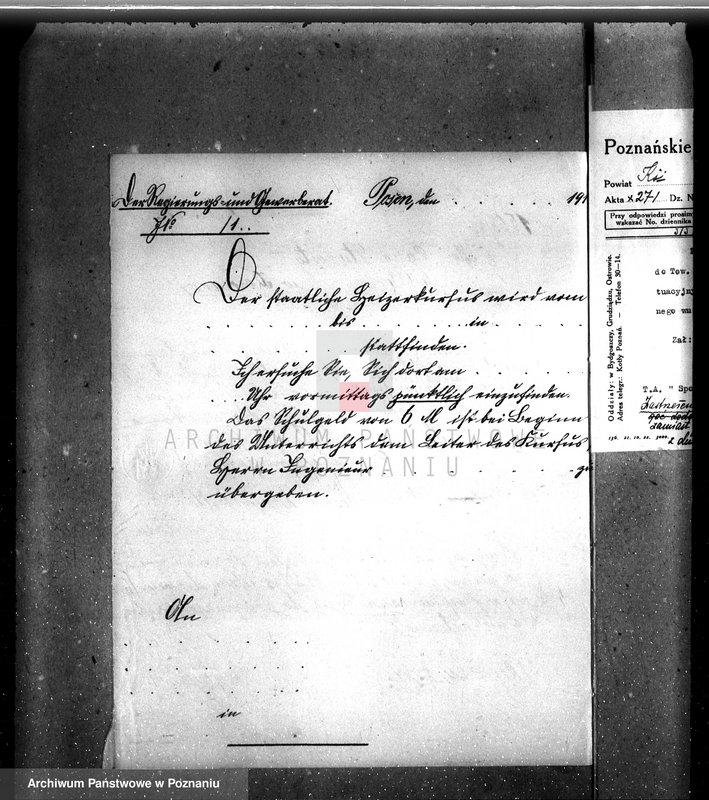 Der Regierungs- und Gewerberat.
Posen, den . . . . . . . 191
/1. .
Der staatliche Heizerkursus wird vom
. . . . . . . . . bis . . . . . . . . in . . . . . . .
. . . . . . . . . stattfinden.
Ich ersuche Sie, Sich dort am . . . . . . .
. . . Uhr vormittags pünktlich einzufinden.
Das Schulgeld von 6 M ist bei Beginn
des Unterrichts dem Leiter des Kursus
Herrn Ingenieur . . . . . . . . . . zu
übergeben.
An
in
Poznańskie
Powiat
Akta X271 Dz. N
Przy odpowiedzi prosim
wskazać No. dziennika
do Tow.
tuacyjny
nego wa
Zał:
T.A. "Spo
zamiast
Oddziały: w Bydgoszczy, Grudziądzu, Ostrowie.
Adres telegr.: Kotły Poznań. — Telefon 30-14.
ARCHIWUM PAŃSTWOWE
W POZNANIU
Archiwum Państwowe w Poznaniu